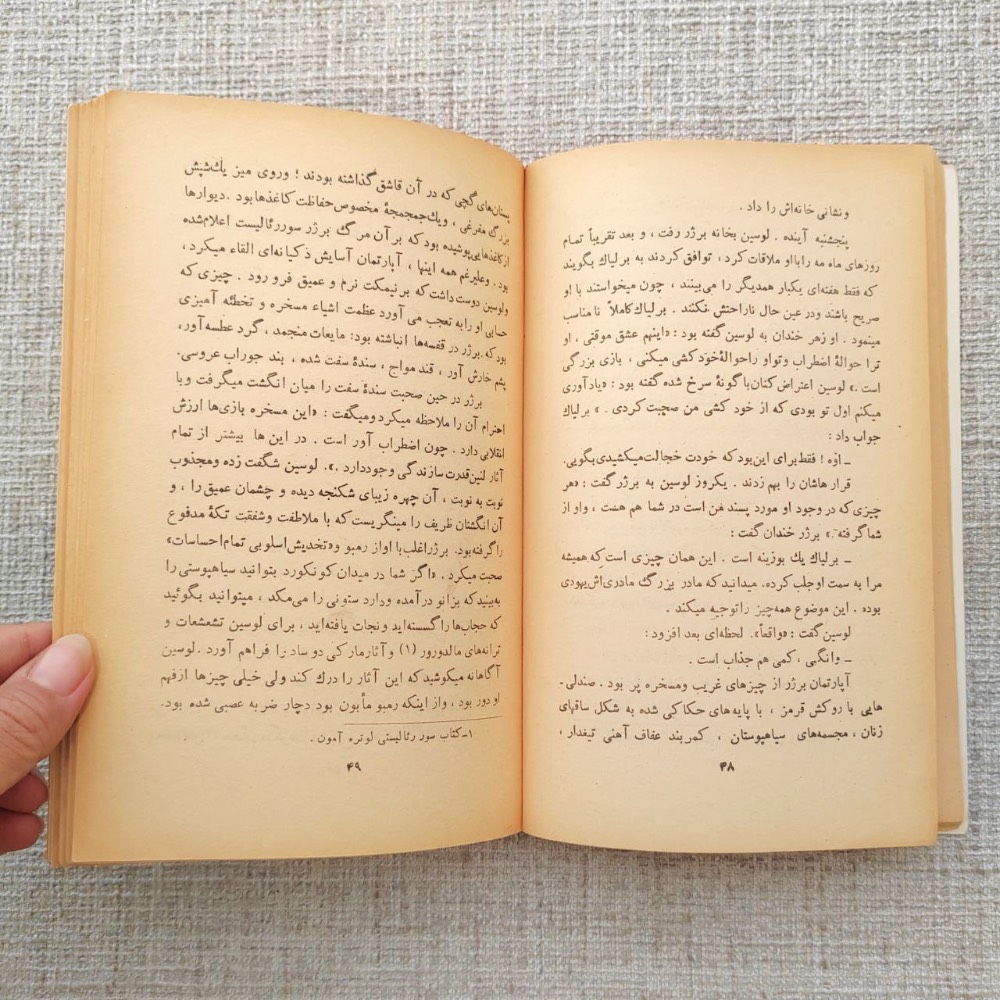 ونشانی خانه‌اش را داد .
پنجشنبه آینده . لوسین بخانه برژر رفت ، و بعد تقریباً تمام
روزهای ماه مه را بااو ملاقات کرد ، توافق کردند به برلیاك بگویند
که فقط هفته‌ای یکبار همدیگر را می‌بینند ، چون میخواستند با او
صریح باشند ودرعین حال ناراحتش نکنند . برلیاك کاملاً نامناسب
مینمود . او زهر خندان به لوسین گفته بود : «اینهم عشق موقتی ، او
ترا حوالهٔ اضطراب وتواو راحوالهٔ خود کشی میکنی ، بازی بزرگی
است .» لوسین اعتراض کنان با گونهٔ سرخ شده گفته بود : «یادآوری
میکنم اول تو بودی که از خود کشی من صحبت کردی . » برلیاك
جواب داد :
ـ اوه ! فقط برای این بود که خودت خجالت میکشیدی بگویی.
قرار هاشان را بهم زدند . یکروز لوسین به برژر گفت : «هر
چیزی که در وجود او مورد پسند من است در شما هم هست ، واو از
شما گرفته .» برژر خندان گفت :
ـ برلیاك یك بوزینه است . این همان چیزی است که همیشه
مرا به سمت او جلب کرده. میدانید که مادر بزرگ مادری‌اش یهودی
بود، . این موضوع همه‌چیز را توجیه میکند .
لوسین گفت : «واقعاً». لحظه‌ای بعد افزود :
ـ وانگهی ، کمی هم جذاب است .
آپارتمان برژر از چیزهای غریب ومسخره پر بود . صندلی-
هایی با روکش قرمز ، با پایه‌های حکاکی شده به شکل ساقهای
زنان ، مجسمه‌های سیاهپوستان ، کمربند عفاف آهنی تیغدار ،
۴۸
پستان‌های گچی که در آن قاشق گذاشته بودند ! وروی میز یك‌شپش
بزرگ مفرغی ، ویك جمجمهٔ مخصوص حفاظت کاغذها بود . دیوارها
از کاغذهایی پوشیده بود که بر آن مرگ برژر سوررئالیست اعلام‌شده
بود ، وعلیرغم همه اینها ، آپارتمان آسایش ذکیانه‌ای القاء میکرد ،
ولوسین دوست داشت که بر نیمکت نرم و عمیق فرو رود . چیزی که
حسابی او رابه تعجب می آورد عظمت اشیاء مسخره و تخطئه آمیزی
بود که برژر در قفسه‌ها انباشته بود: مایعات منجمد ، گرد عطسه‌آور،
پشم خارش آور ، قند مواج ، سندهٔ سفت شده ، بند جوراب عروسی.
برژر در حین صحبت سندهٔ سفت را میان انگشت میگرفت وبا
احترام آن را ملاحظه میکرد ومیگفت : «این مسخره بازی‌ها ارزش
انقلابی دارد . چون اضطراب آور است . در این ها بیشتر از تمام
آثار لنین قدرت سازندگی وجود دارد .». لوسین شگفت زده ومجذوب
نوبت به نوبت ، آن چهره زیبای شکنجه دیده و چشمان عمیق را ، و
آن انگشتان ظریف را مینگریست که با ملاطفت وشفقت تکهٔ مدفوع
را گرفته بود. برژر اغلب با اواز رمبو و«تخدیش اسلوبی تمام احساسات»
صحبت میکرد . «اگر شما در میدان کونکورد بتوانید سیاهپوستی را
به‌بینید که بزانو درآمده ودارد ستونی را می‌مکد ، میتوانید بگوئید
که حجاب‌ها را گسسته‌اید و نجات یافته‌اید ، برای لوسین تشعشعات و
ترانه‌های مالدورور (۱) و آثار مارکی دو ساد را فراهم آورد . لوسین
آگاهانه میکوشید که این آثار را درك کند ولی خیلی چیزها ازفهم
او دور بود ، واز اینکه رمبو مأبون بود دچار ضربه عصبی شده بود.
۱ـ کتاب سور رئالیستی لوتره آمون .
۴۹